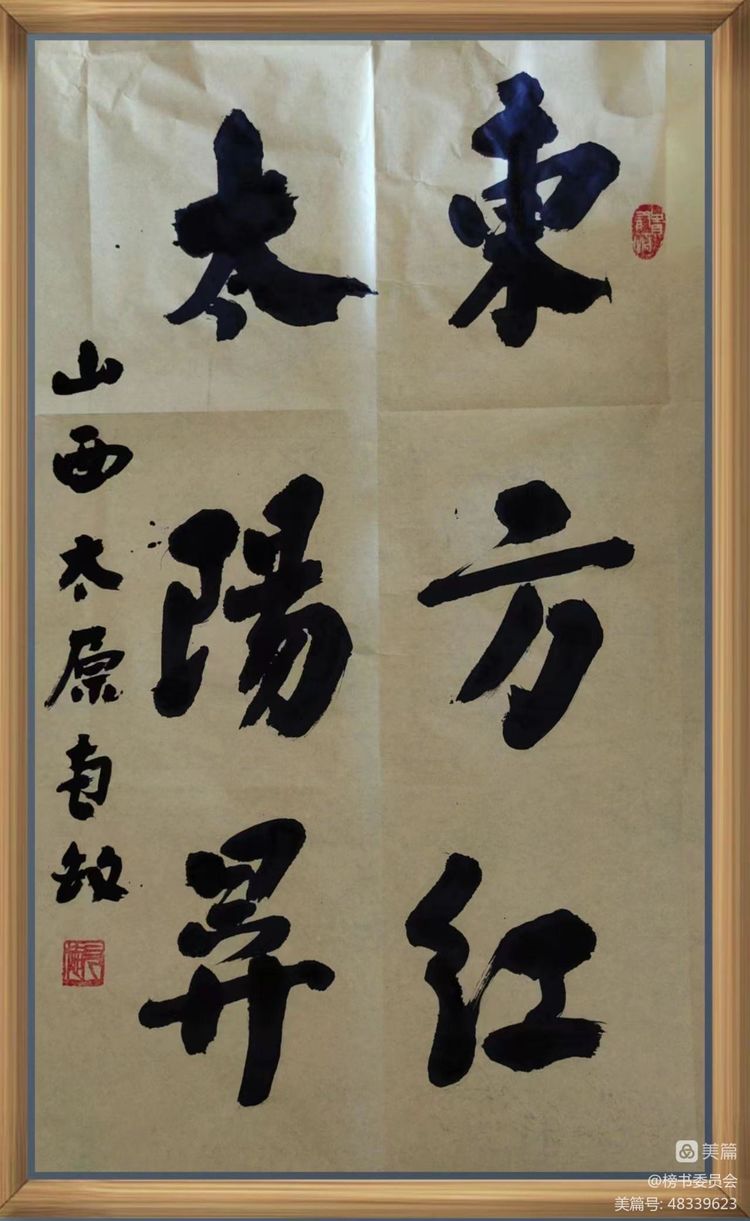 東方红
太陽昇
山西太原敏
美篇
@榜书委员会
美篇号: 48339623